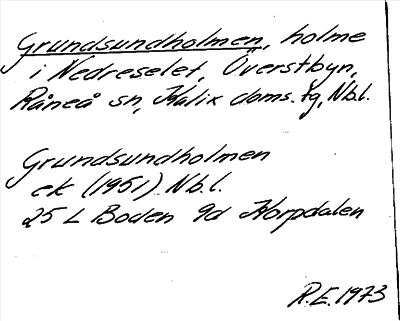 Grundsundholmen, holme
i Nedreselet, Överstbyn,
Råneå sn, Kalix doms. tg, Nb.l.
Grundsundholmen
ek (1951) Nb.l.
25 L Boden 9d Horpdalen
R.E. 1973